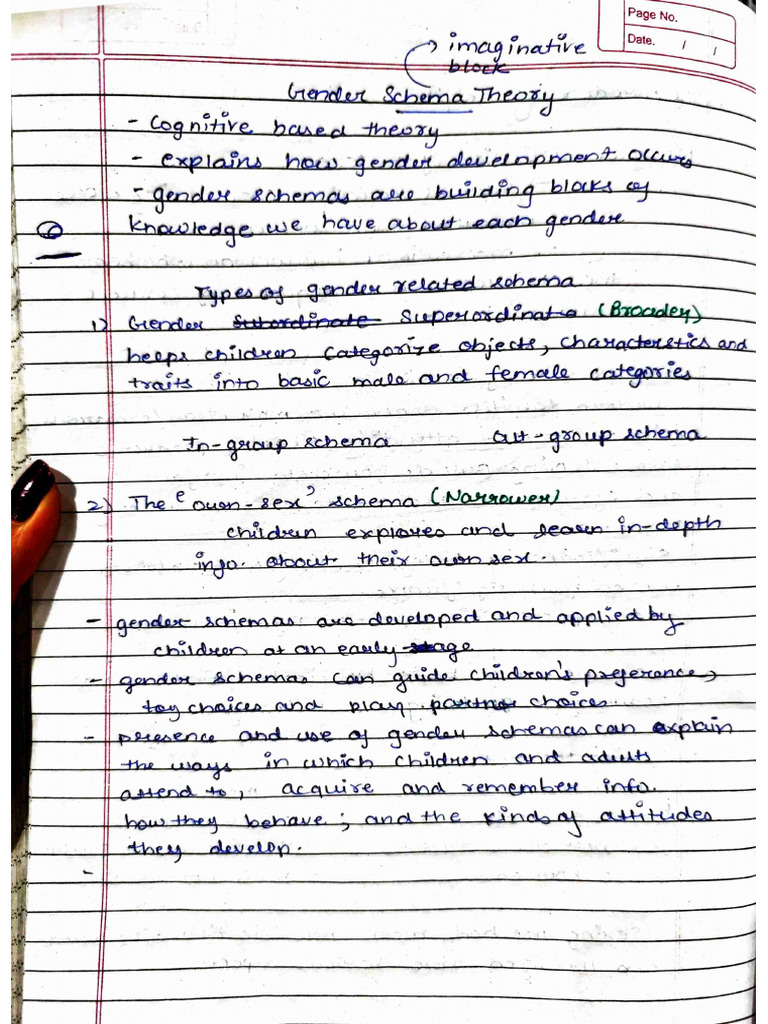 Page No.
Date. / /
imaginative
block
Gender Schema Theory
- Cognitive based theory
- explains how gender development occurs
- gender schemas are building blocks of
knowledge we have about each gender
6
Types of gender related schema
1) Gender Subordinate Superordinate (Broader)
helps children categorize objects, characteristics and
traits into basic male and female categories
In-group schema Out-group schema
2) The 'own-sex' schema (Narrower)
children explores and learn in-depth
info. about their own sex.
- gender schemas are developed and applied by
children at an early age
- gender schemas can guide children's preference,
toy choices and play partner choices.
- presence and use of gender schemas can explain
the ways in which children and adults
attend to, acquire and remember info.
how they behave; and the kinds of attitudes
they develop.
-